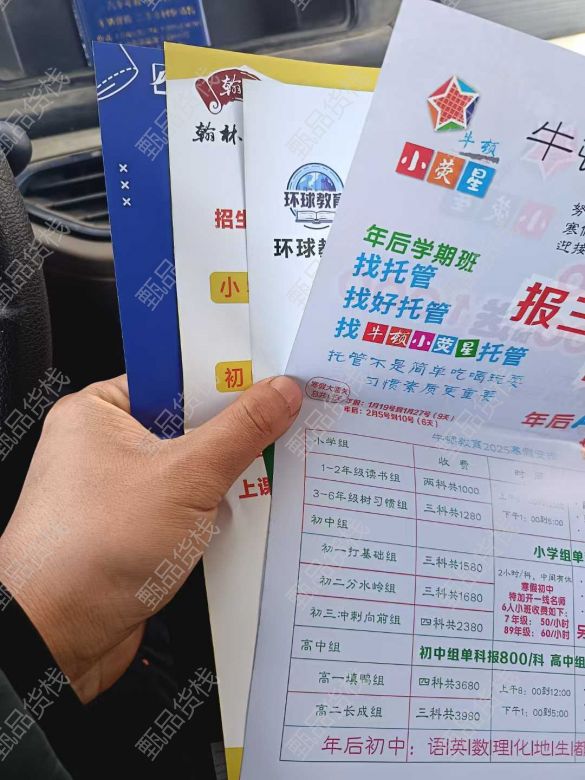 翰
翰林
招生
小
初
上课
环球教育
环球教
牛顿
小荧星
年后学期班
找托管
找好托管
找牛顿小荧星托管
托管不是简单吃喝玩耍
习惯素质更重要
报三
年后
寒假大重关
年前:1月19号到1月27号(9天)
年后:2月5号到10号(6天)
牛顿教育2025寒假安排
小学组
收费
时间
1-2年级读书组
两科共1000
3-6年级树习惯组
三科共1280
下午1:00到5:00
初中组
小学组单
初一打基础组
三科共1580
初二分水岭组
三科共1680
初三冲刺向前组
四科共2380
2小时/科,中间有休
寒假初中
特加开一线名师
6人小班收费如下:
7年级:50/小时
89年级:60/小时
高中组
初中组单科报800/科 高中组
高一填鸭组
四科共3680
上午8:00到12:00
高二长成组
三科共3980
下午1:00到5:00
年后初中:语|英|数|理|化|地|生|都
甄品货栈